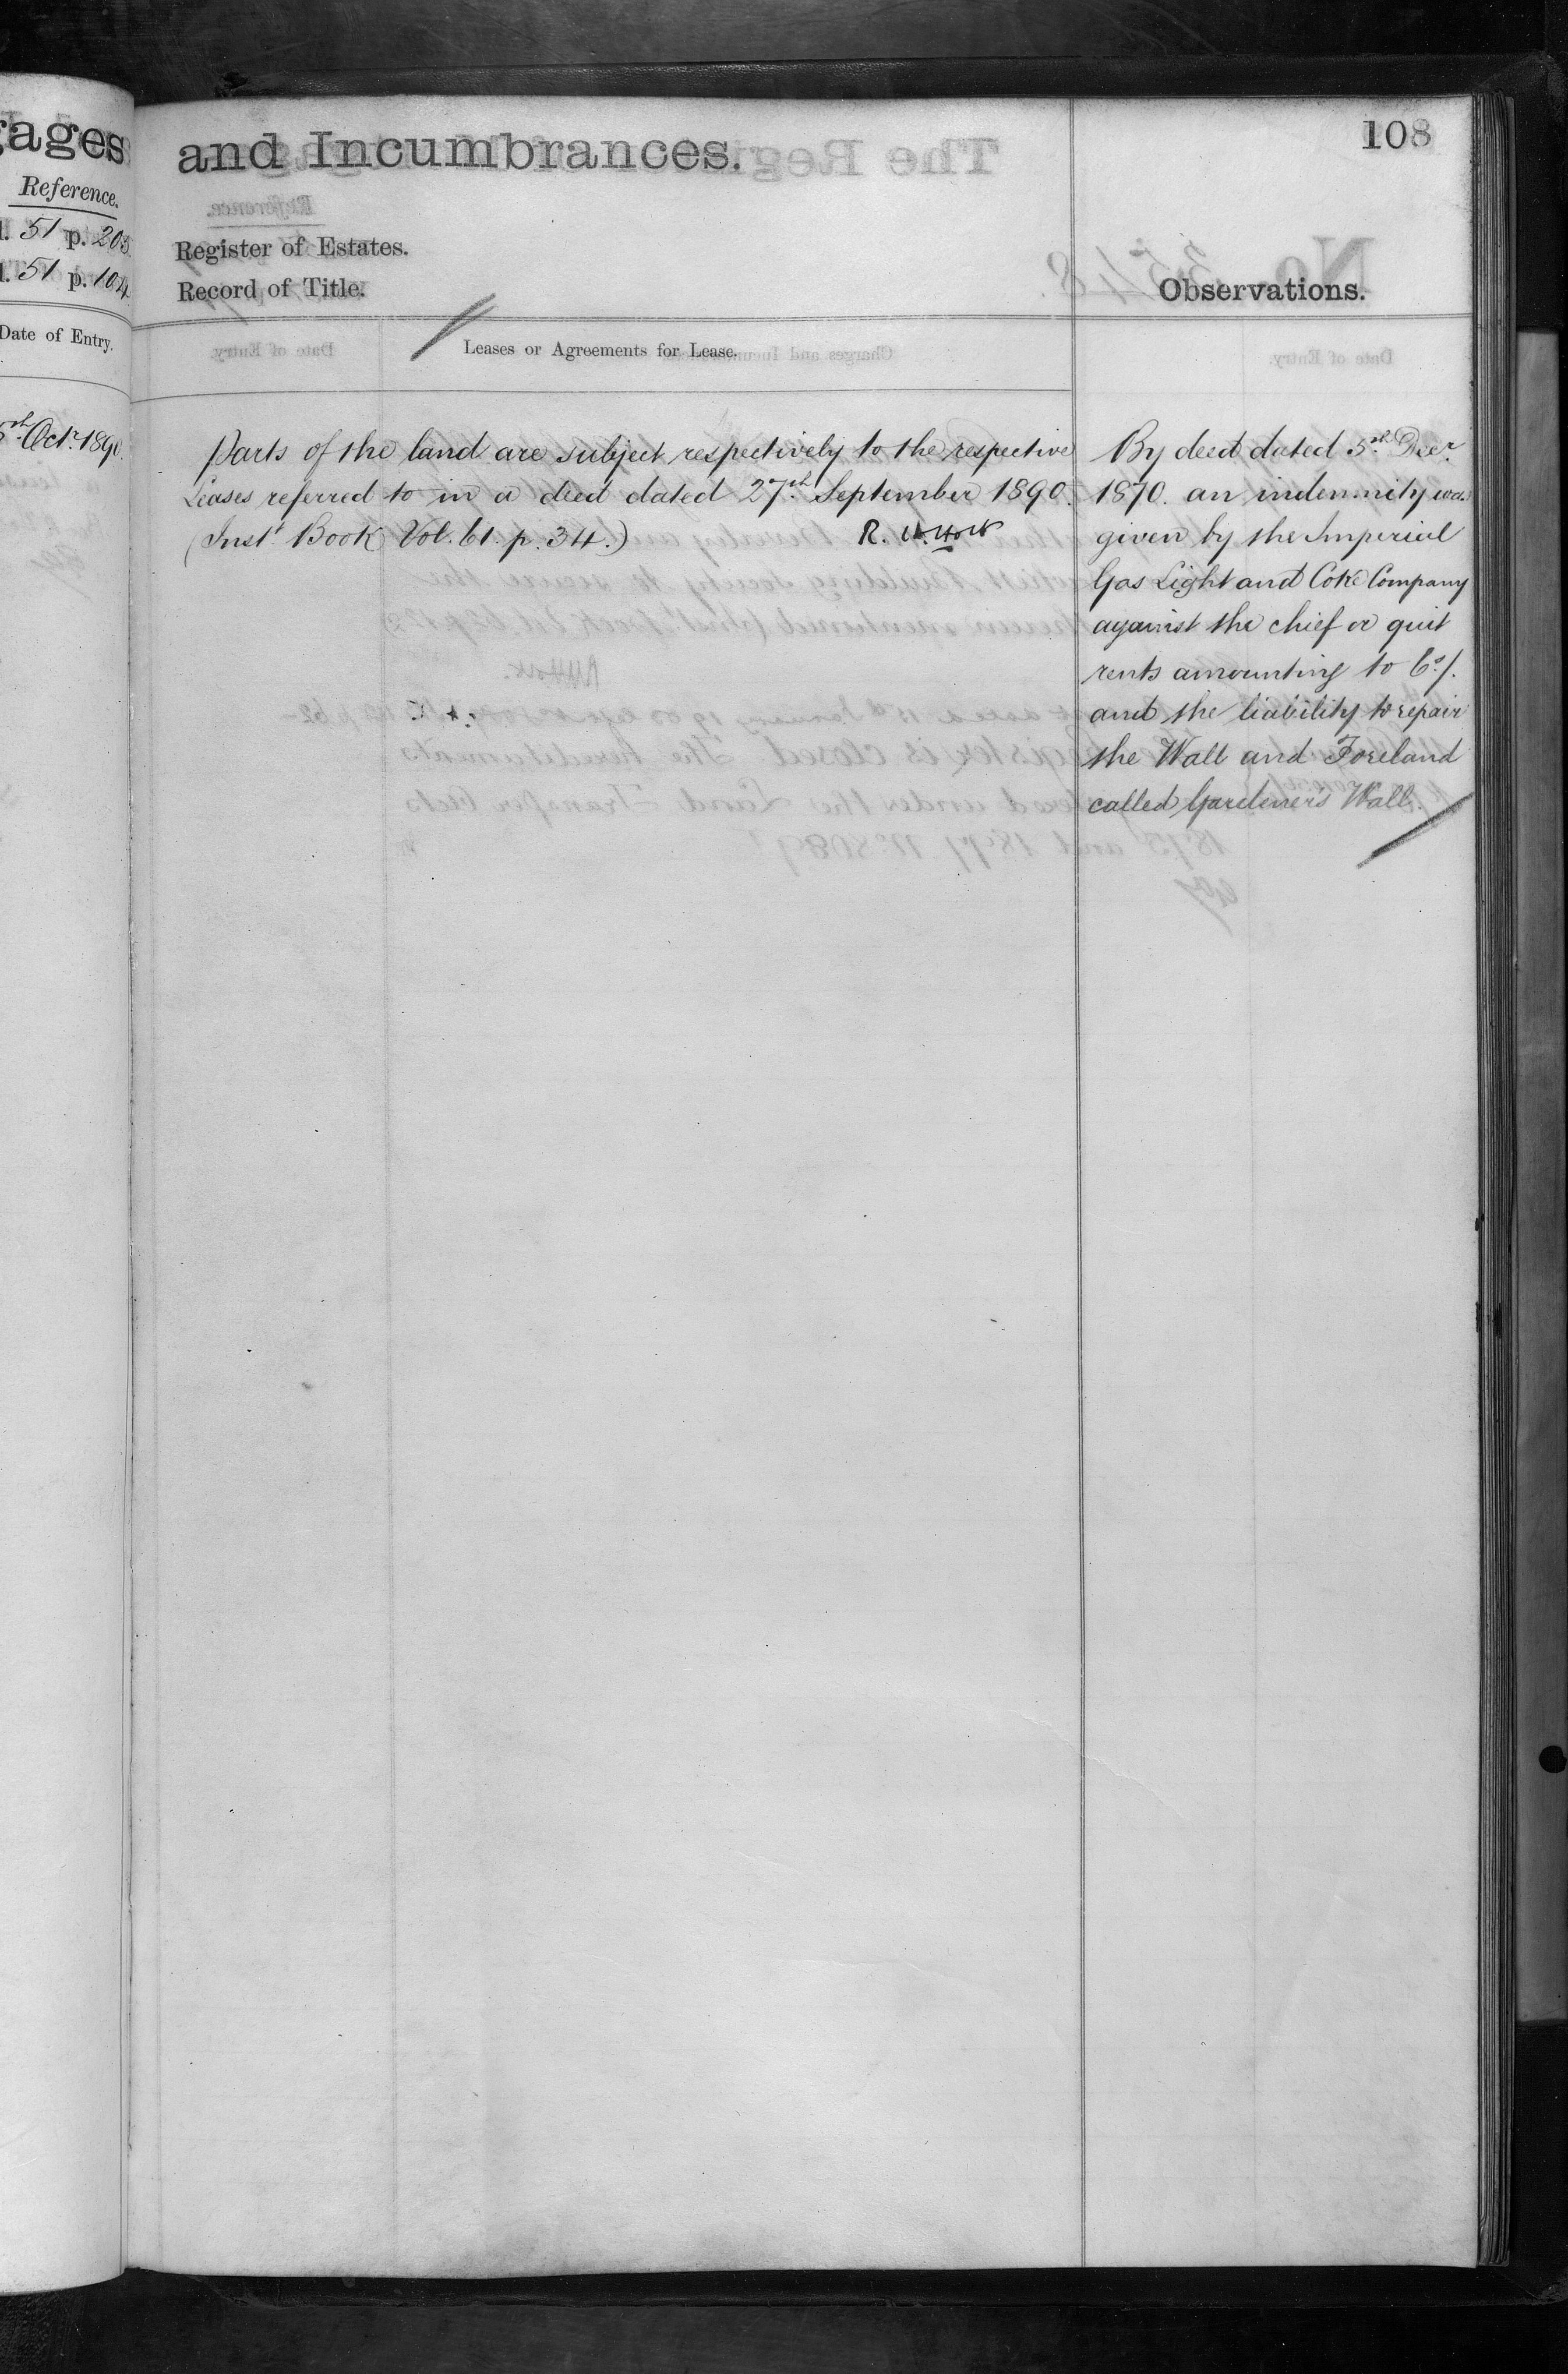 gages
Reference.
l. 51 p. 203
l. 51 p. 104
Date of Entry.
5th Octr. 1890.
and Incumbrances.
108
Register of Estates.
Record of Title.
Observations.
Leases or Agreements for Lease.
Parts of the land are subject respectively to the respective
Leases referred to in a deed dated 27th September 1890.
(Inst. Book Vol. 61. p. 34.)
By deed dated 5th Decr.
1870. an indemnity was
given by the Imperial
Gas Light and Coke Company
against the chief or quit
rents amounting to 6s/.
and the liability to repair
the Wall and Foreland
called Gardener's Wall.